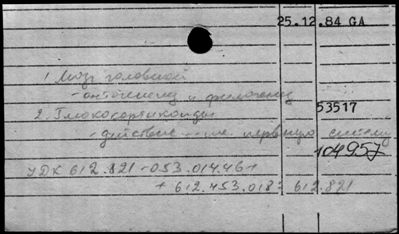 25.12.84 GA
1. Мозг головной
- онтогенез и филогенез
53517
2. Глюкокортикоиды
- действие на нервную систему
104957
УДК 612.821-053.014.46+
+ 612.453.018: 612.821